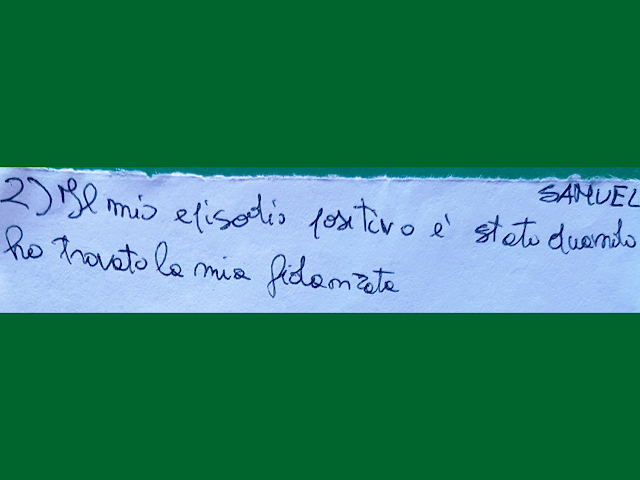 SAMUEL
2) Il mio episodio positivo è stato quando
ho trovato la mia fidanzata